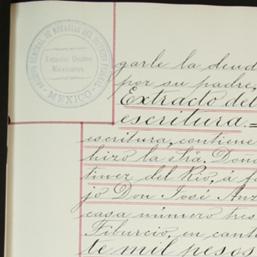 Estados Unidos
Mexicanos
MEXICO
garle la deud
por su padre,
Extracto del
escritura.=
escritura, contiene
hizo la Sra. Don
tinez del Rio, á fa
jo Don José An
casa número tres
Tiburcio, en cant
te mil pesos